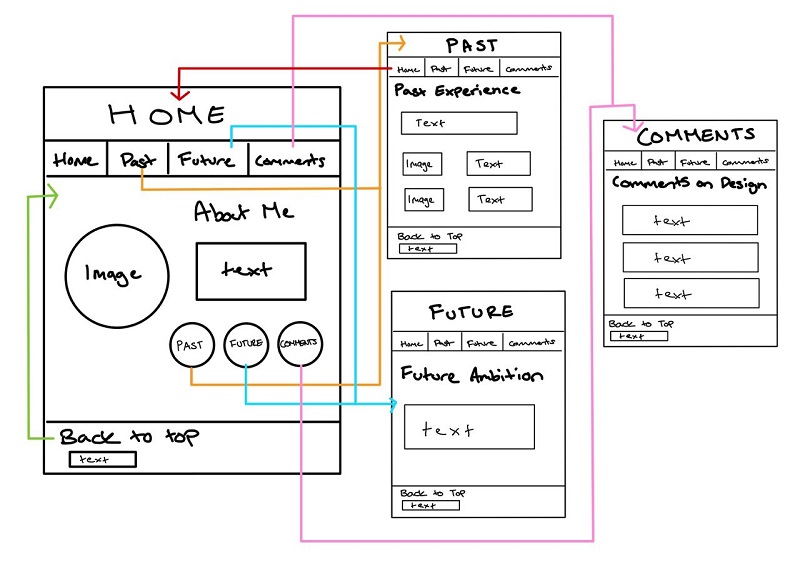 HOME
Home Past Future Comments
About Me
Image
text
PAST FUTURE COMMENTS
Back to top
text
PAST
Home Past Future Comments
Past Experience
Text
Image Text
Image Text
Back to Top
text
FUTURE
Home Past Future Comments
Future Ambition
text
Back to Top
text
COMMENTS
Home Past Future Comments
Comments on Design
text
text
text
Back to Top
text